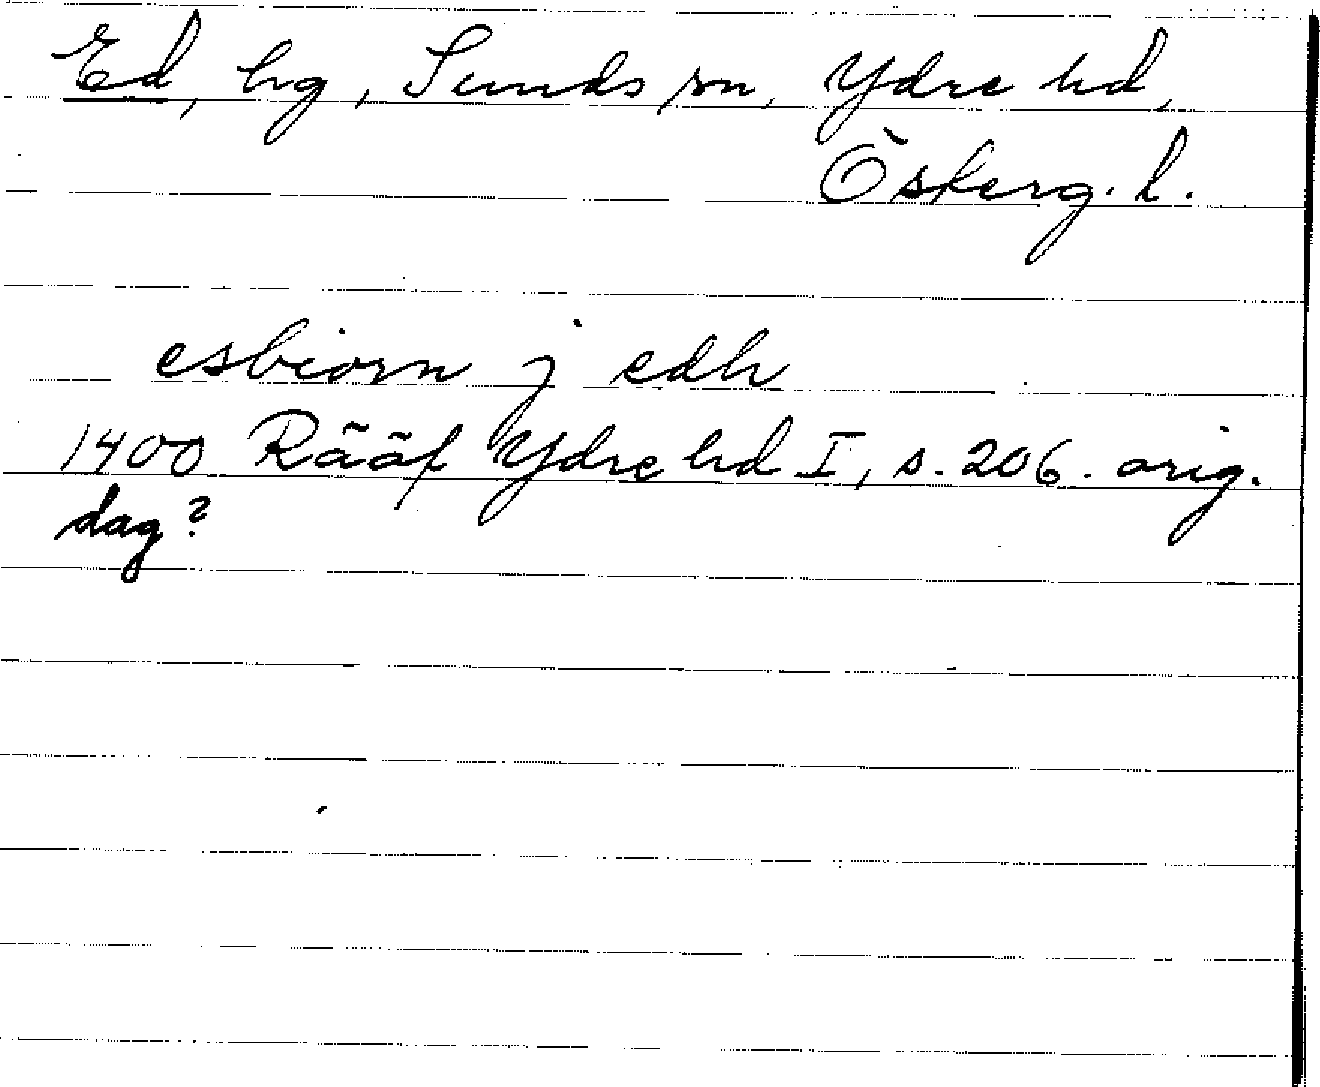 Ed, hg, Sunds sn, Ydre hd,
Österg. l.
esbiorn j edh
1400 Rääf Ydre hd I, s. 206. orig.
dag?